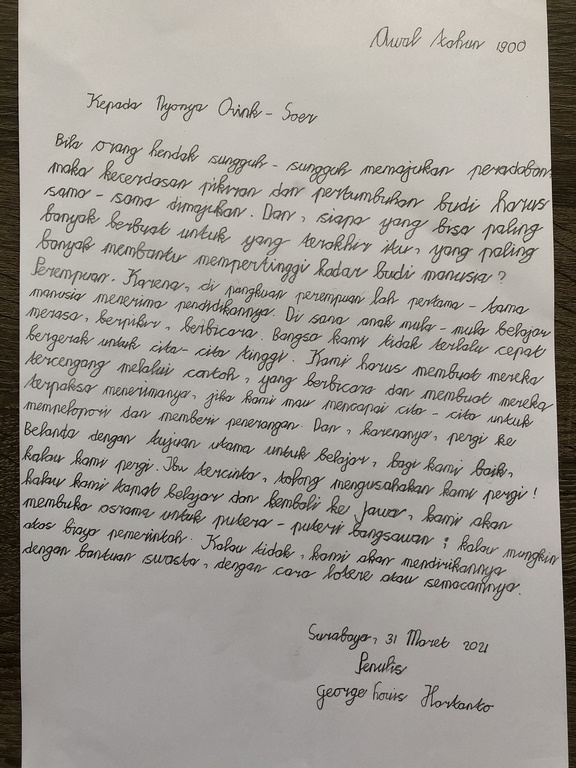 Awal tahun 1900
Kepada Nyonya Ovink - Soer
Bila orang hendak sungguh - sungguh memajukan peradaban,
maka kecerdasan pikiran dan pertumbuhan budi harus
sama - sama dimajukan. Dan, siapa yang bisa paling
banyak berbuat untuk yang terakhir itu, yang paling
banyak membantu mempertinggi kadar budi manusia?
Perempuan. Karena, di pangkuan perempuan lah pertama - tama
manusia menerima pendidikannya. Di sana anak mula - mula belajar
merasa, berpikir, berbicara. Bangsa kami tidak terlalu cepat
bergerak untuk cita - cita tinggi. Kami harus membuat mereka
tercengang melalui contoh, yang berbicara dan membuat mereka
terpaksa menerimanya, jika kami mau mencapai cita - cita untuk
mempelopori dan memberi penerangan. Dan, karenanya, pergi ke
Belanda dengan tujuan utama untuk belajar, bagi kami baik,
kalau kami pergi. Ibu tercinta, tolong mengusahakan kami pergi!
Kalau kami tamat belajar dan kembali ke Jawa, kami akan
membuka asrama untuk putera - puteri bangsawan ; kalau mungkin
atas biaya pemerintah. Kalau tidak, kami akan mendirikannya
dengan bantuan swasta, dengan cara lotere atau semacamnya.
Surabaya, 31 Maret 2021
Penulis
George Louis Hartanto